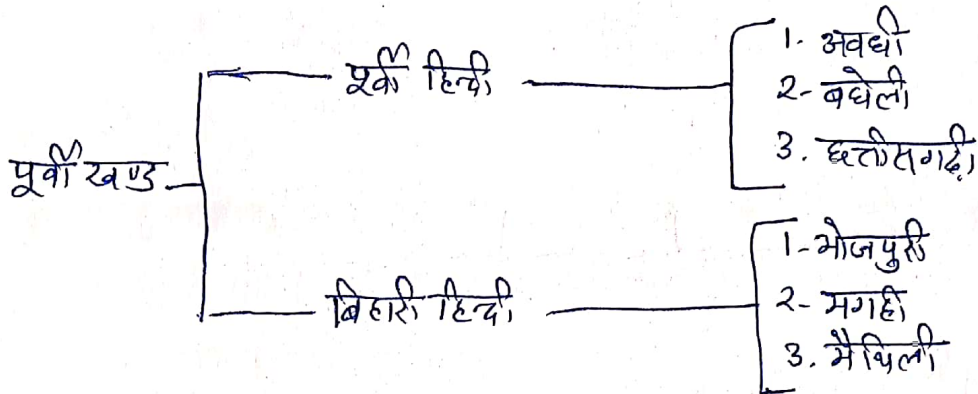 पूर्वी खण्ड
पूर्वी हिन्दी
1- अवधी
2- बघेली
3. छत्तीसगढ़ी
बिहारी हिन्दी
1- भोजपुरी
2- मगही
3. मैथिली